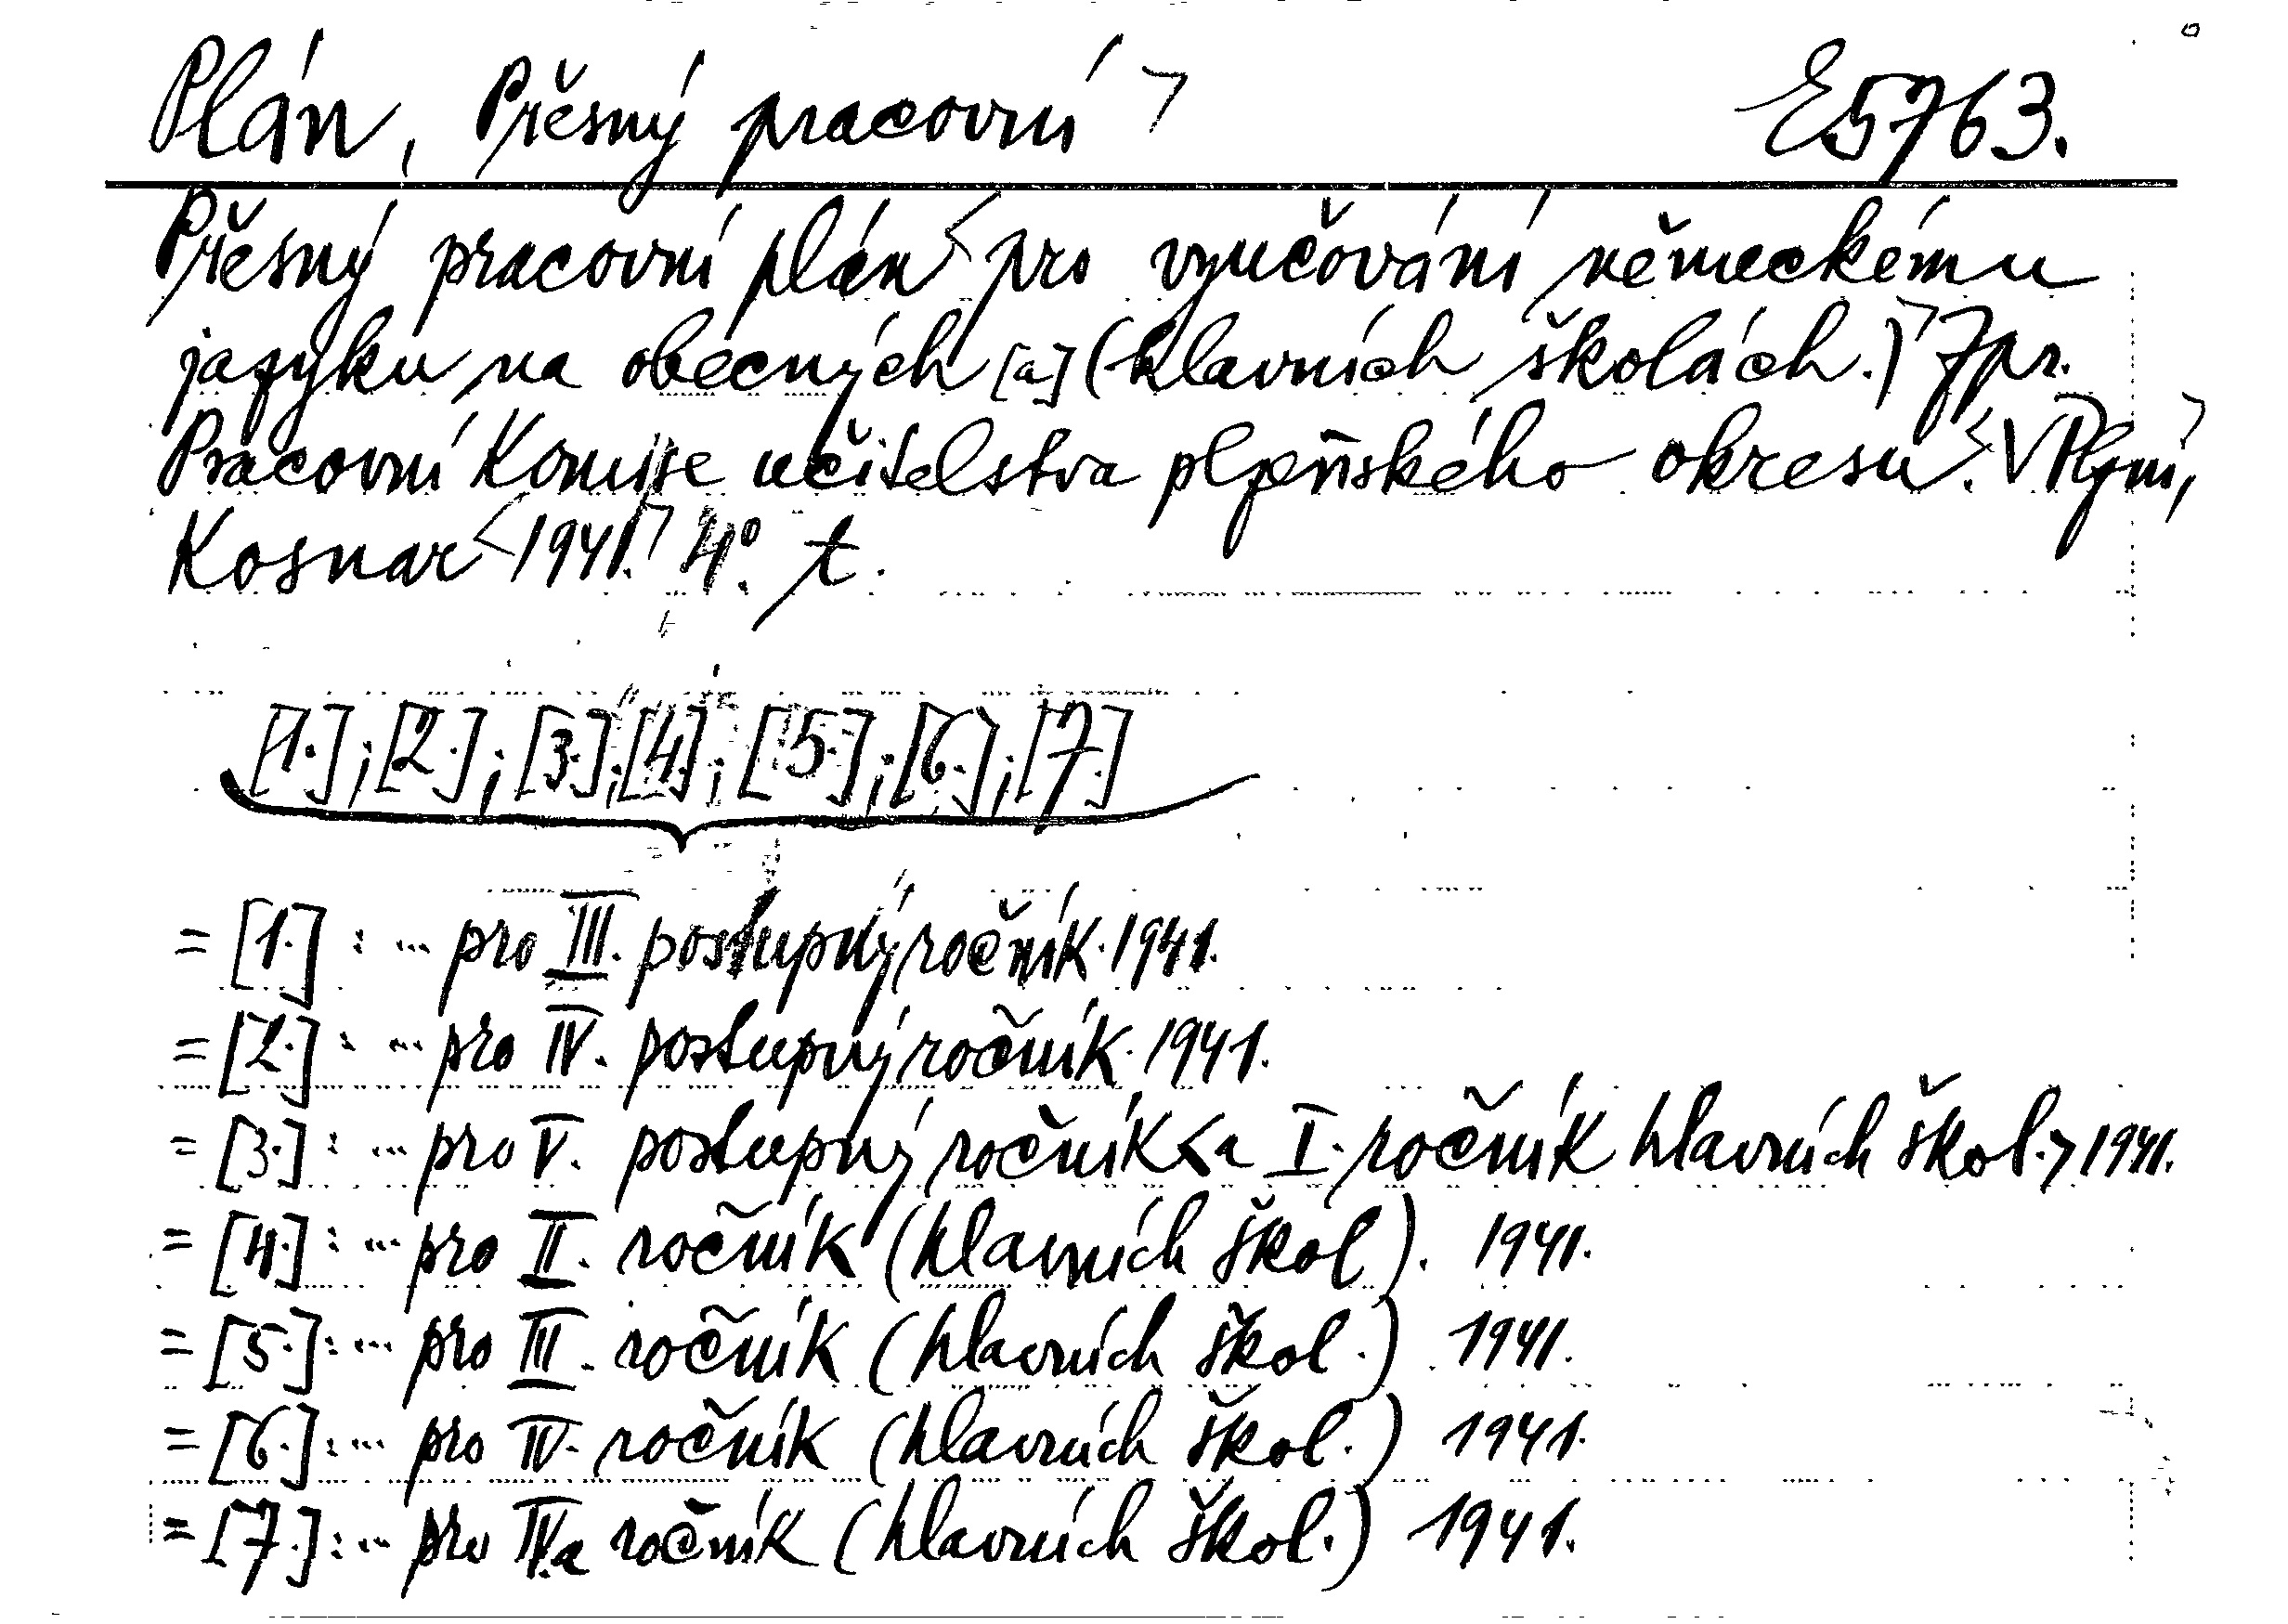 Plán, Přesný pracovní > E5763.
Přesný pracovní plán < pro vyučování německému
jazyku na obecných [a] (hlavních školách.) > 7 pr.
Pracovní Komise učitelstva plzeňského okresu. < V Plzni, >
Kosnar < 1941. > 4°. t.
[1.]; [2.]; [3.]; [4.]; [5.]; [6.]; [7.]
= [1.] : ... pro III. postupný ročník. 1941.
= [2.] : ... pro IV. postupný ročník. 1941.
= [3.] : ... pro V. postupný ročník < a I. ročník hlavních škol. > 1941.
= [4.] : ... pro II. ročník (hlavních škol). 1941.
= [5.] : ... pro III. ročník (hlavních škol.) 1941.
= [6.] : ... pro IV. ročník (hlavních škol.) 1941.
= [7.] : ... pro IV.a ročník (hlavních škol.) 1941.